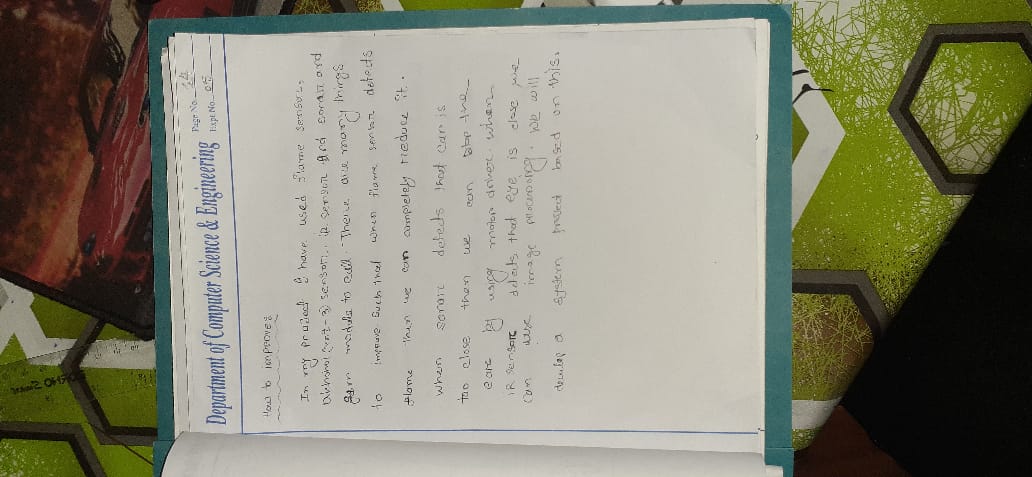 Department of Computer Science & Engineering
Page No. 24
Expt No. 05
How to improve:
In my project I have used flame sensor,
Alchohol (mq-3) sensor, ir sensor and sonar and
gsm module to call. There are many things
to improve such that when flame sensor detects
flame then we can completely reduce it.
When sonar detects that car is
too close then we can stop the
car by using motor driver. when
IR sensor detects that eye is close we
can use image processing. We will
develop a system project based on this.